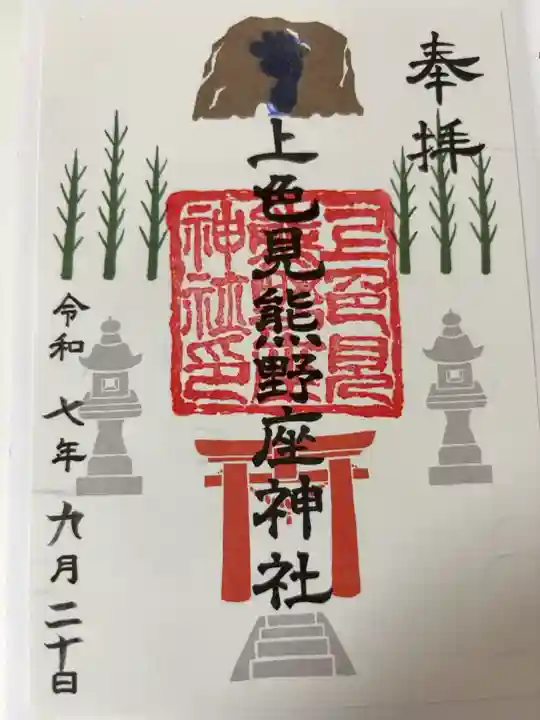 奉拝
上色見熊野座神社
上色見
神社印
令和 七年 九月二十日